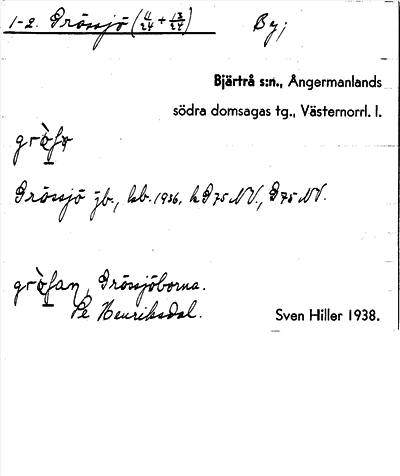 1-2. Grössjö (4/24 + 13/24) By;
Bjärtrå s:n., Ångermanlands
södra domsagas tg., Västernorrl. l.
Grössjö jb., kb. 1936, k G75 NV., G75 NV.
Grössjöborna.
Pe Henriksdal.
Sven Hiller 1938.